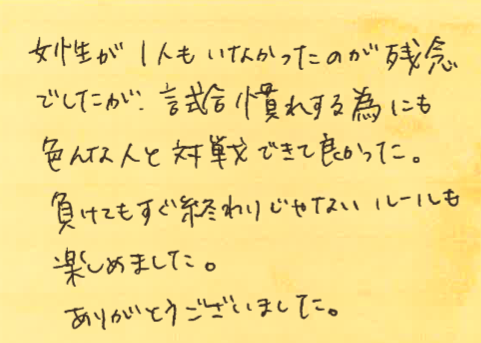 女性が1人もいなかったのが残念
でしたが、試合慣れする為にも
色んな人と対戦できて良かった。
負けてもすぐ終わりじゃないルールも
楽しめました。
ありがとうございました。